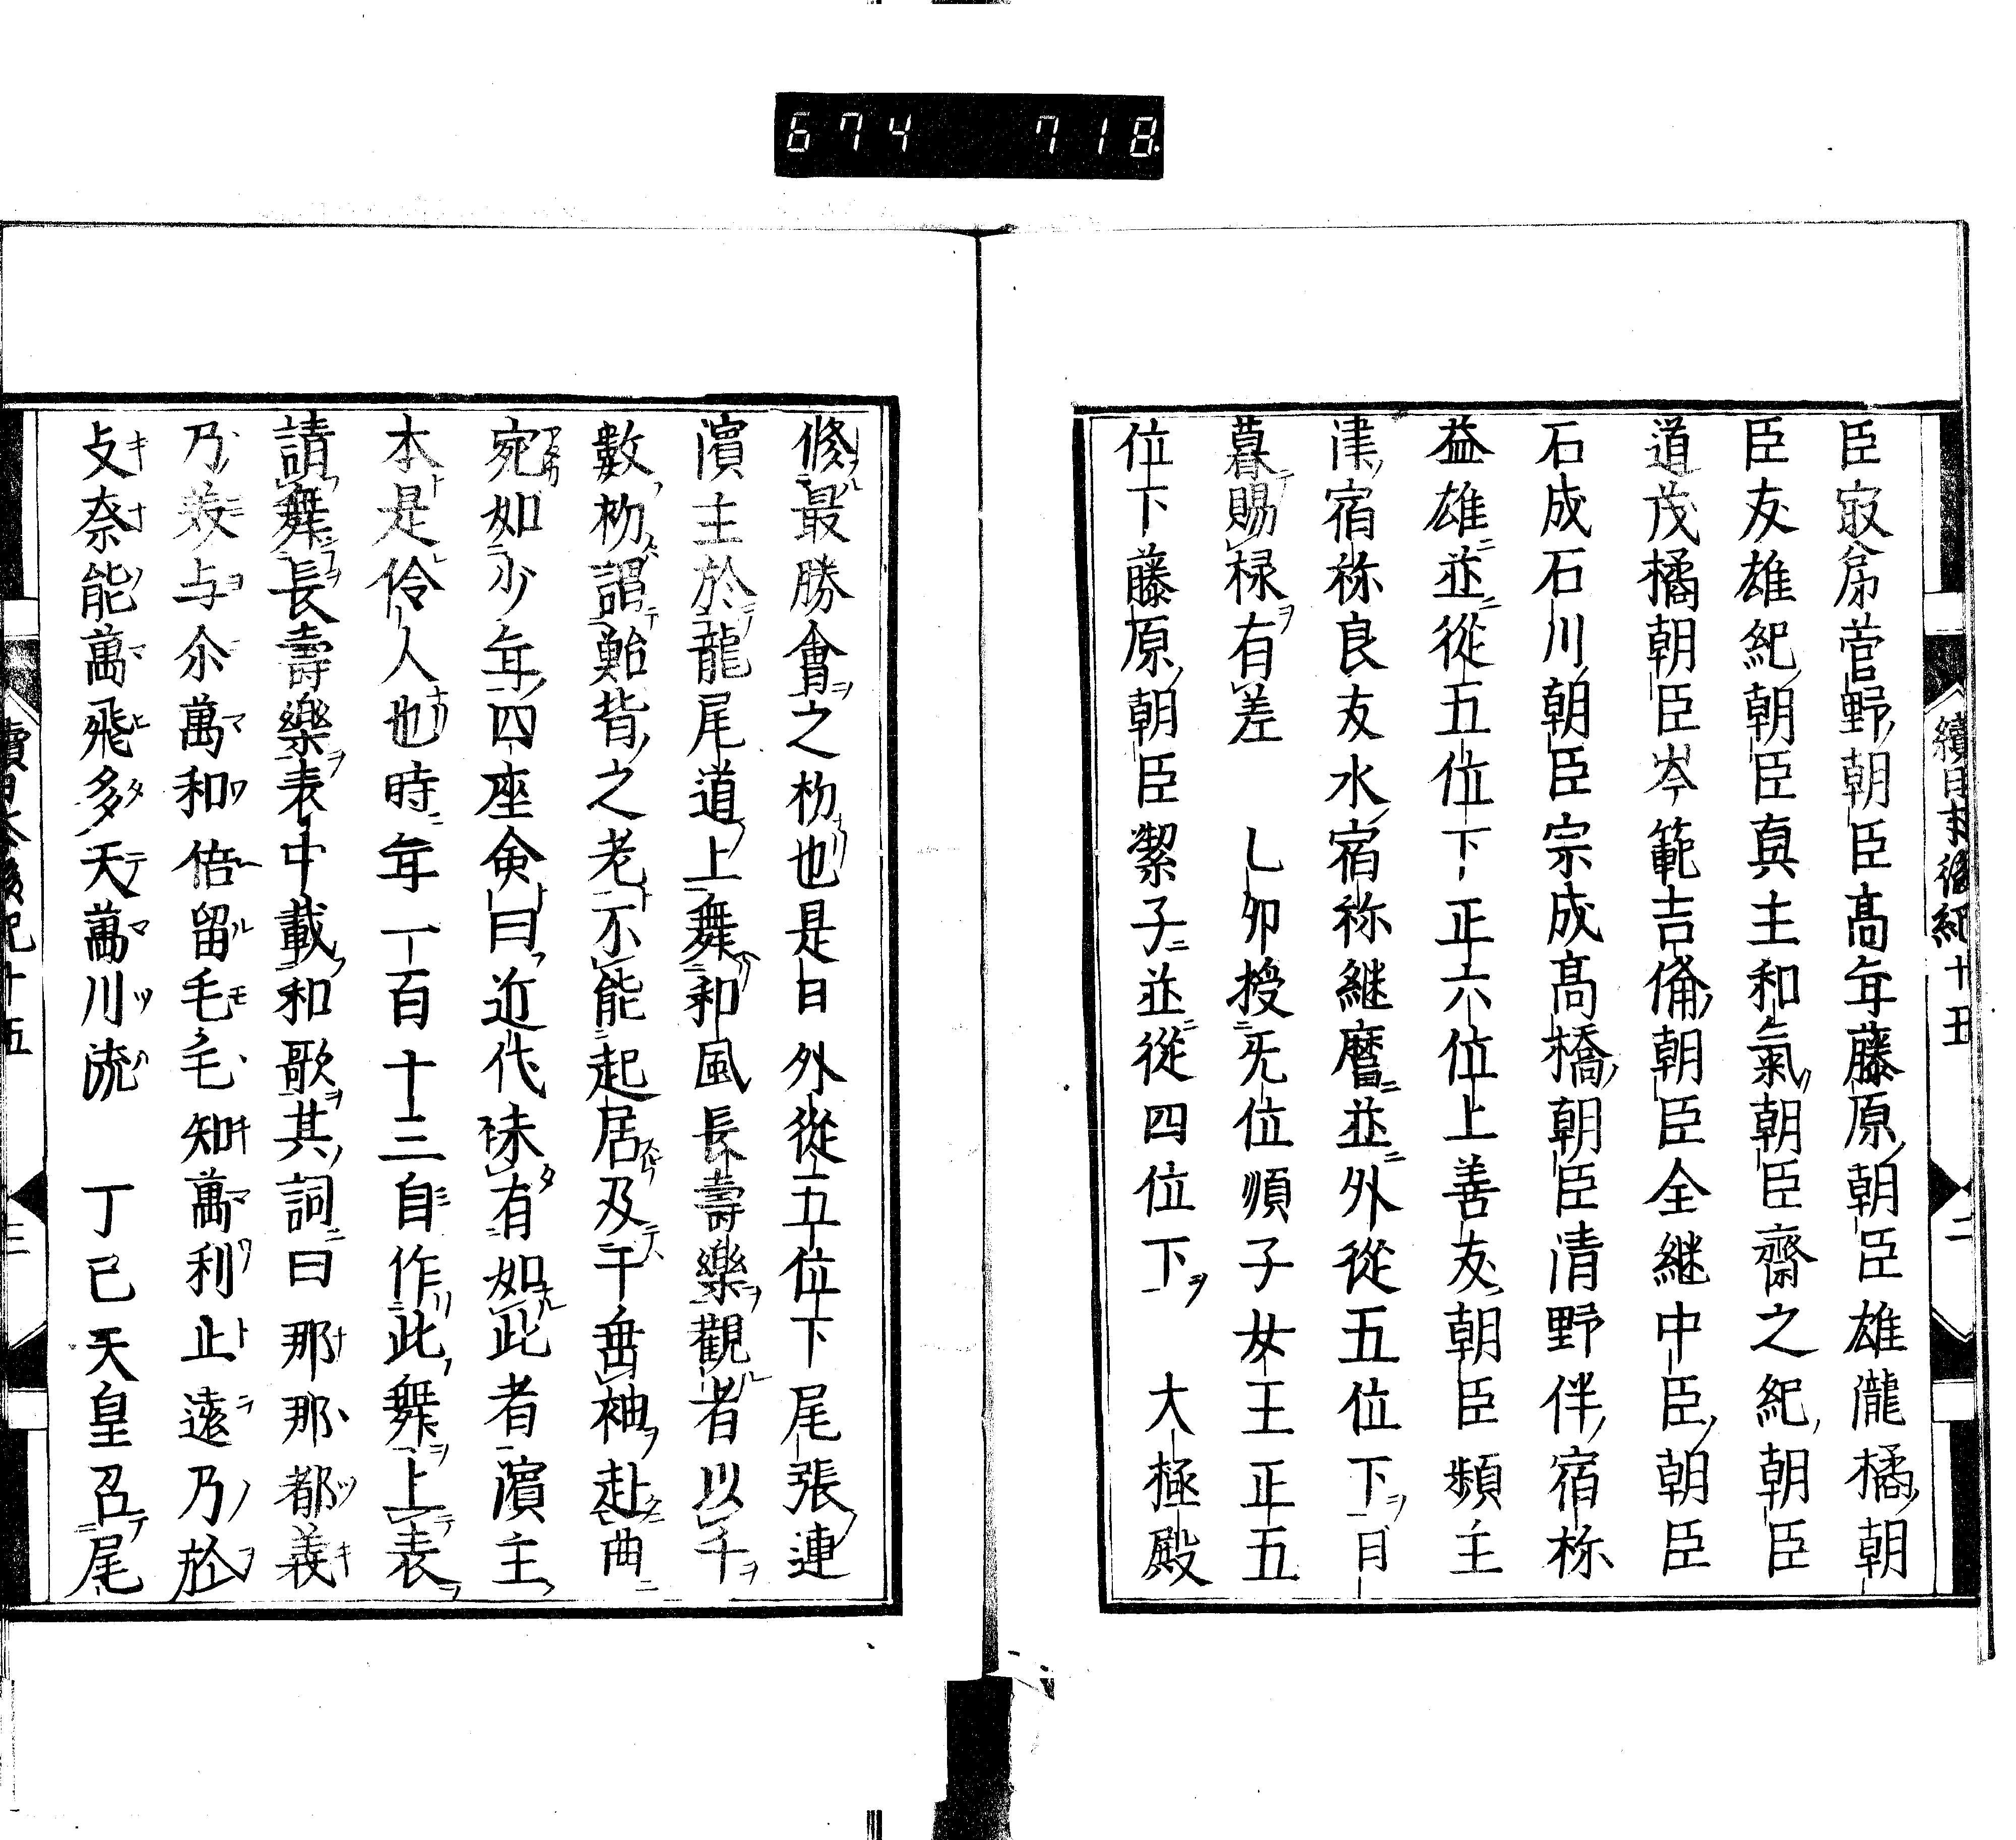 674 718
續日本後紀十五
二
臣㝡弟菅野朝臣髙年藤原朝臣雄瀧橘朝
臣友雄紀朝臣真主和氣朝臣齋之紀朝臣
道茂橘朝臣岑範吉備朝臣全継中臣朝臣
石成石川朝臣宗成髙橋朝臣清野伴宿祢
益雄並從五位下正六位上善友朝臣頴主
津宿祢良友水宿祢継麿並外從五位下日
暮賜禄有差 乙夘授旡位順子女王正五
位下藤原朝臣潔子並從四位下 大極殿
修最勝會之初也是日外從五位下尾張連
濱主於龍尾道上舞和風長壽樂觀者以千
數初謂鮐背之老不能起居及于垂袖赴曲
宛如少年四座僉曰近代未有如此者濱主
本是伶人也時年一百十三自作此舞上表
請舞長壽樂表中載和歌其詞曰那那都義
乃美与尓萬和倍留毛毛知萬利止遠乃於
支奈能萬飛多天萬川流 丁巳天皇召尾
續日本後紀十五
三